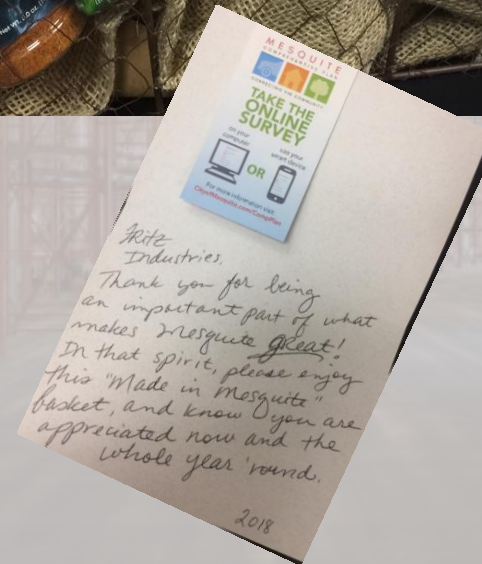 Net Wt.
MESQUITE
COMPREHENSIVE PLAN
CONNECTING THE COMMUNITY
TAKE THE
ONLINE
SURVEY
on your
computer
OR
use your
smart device
For more information visit
CityofMesquite.com/CompPlan
Fritz
Industries,
Thank you for being
an important part of what
makes Mesquite great!
In that spirit, please enjoy
this "Made in Mesquite"
basket, and know you are
appreciated now and the
whole year 'round.
2018